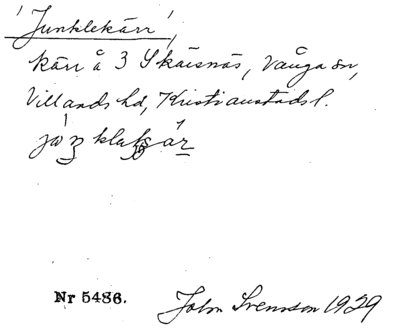 'Junklekärr',
kärr å 3 Skärsnäs, Vånga sn,
Villands hd, Kristianstads l.
Nr 5486.
John Svensson 1929